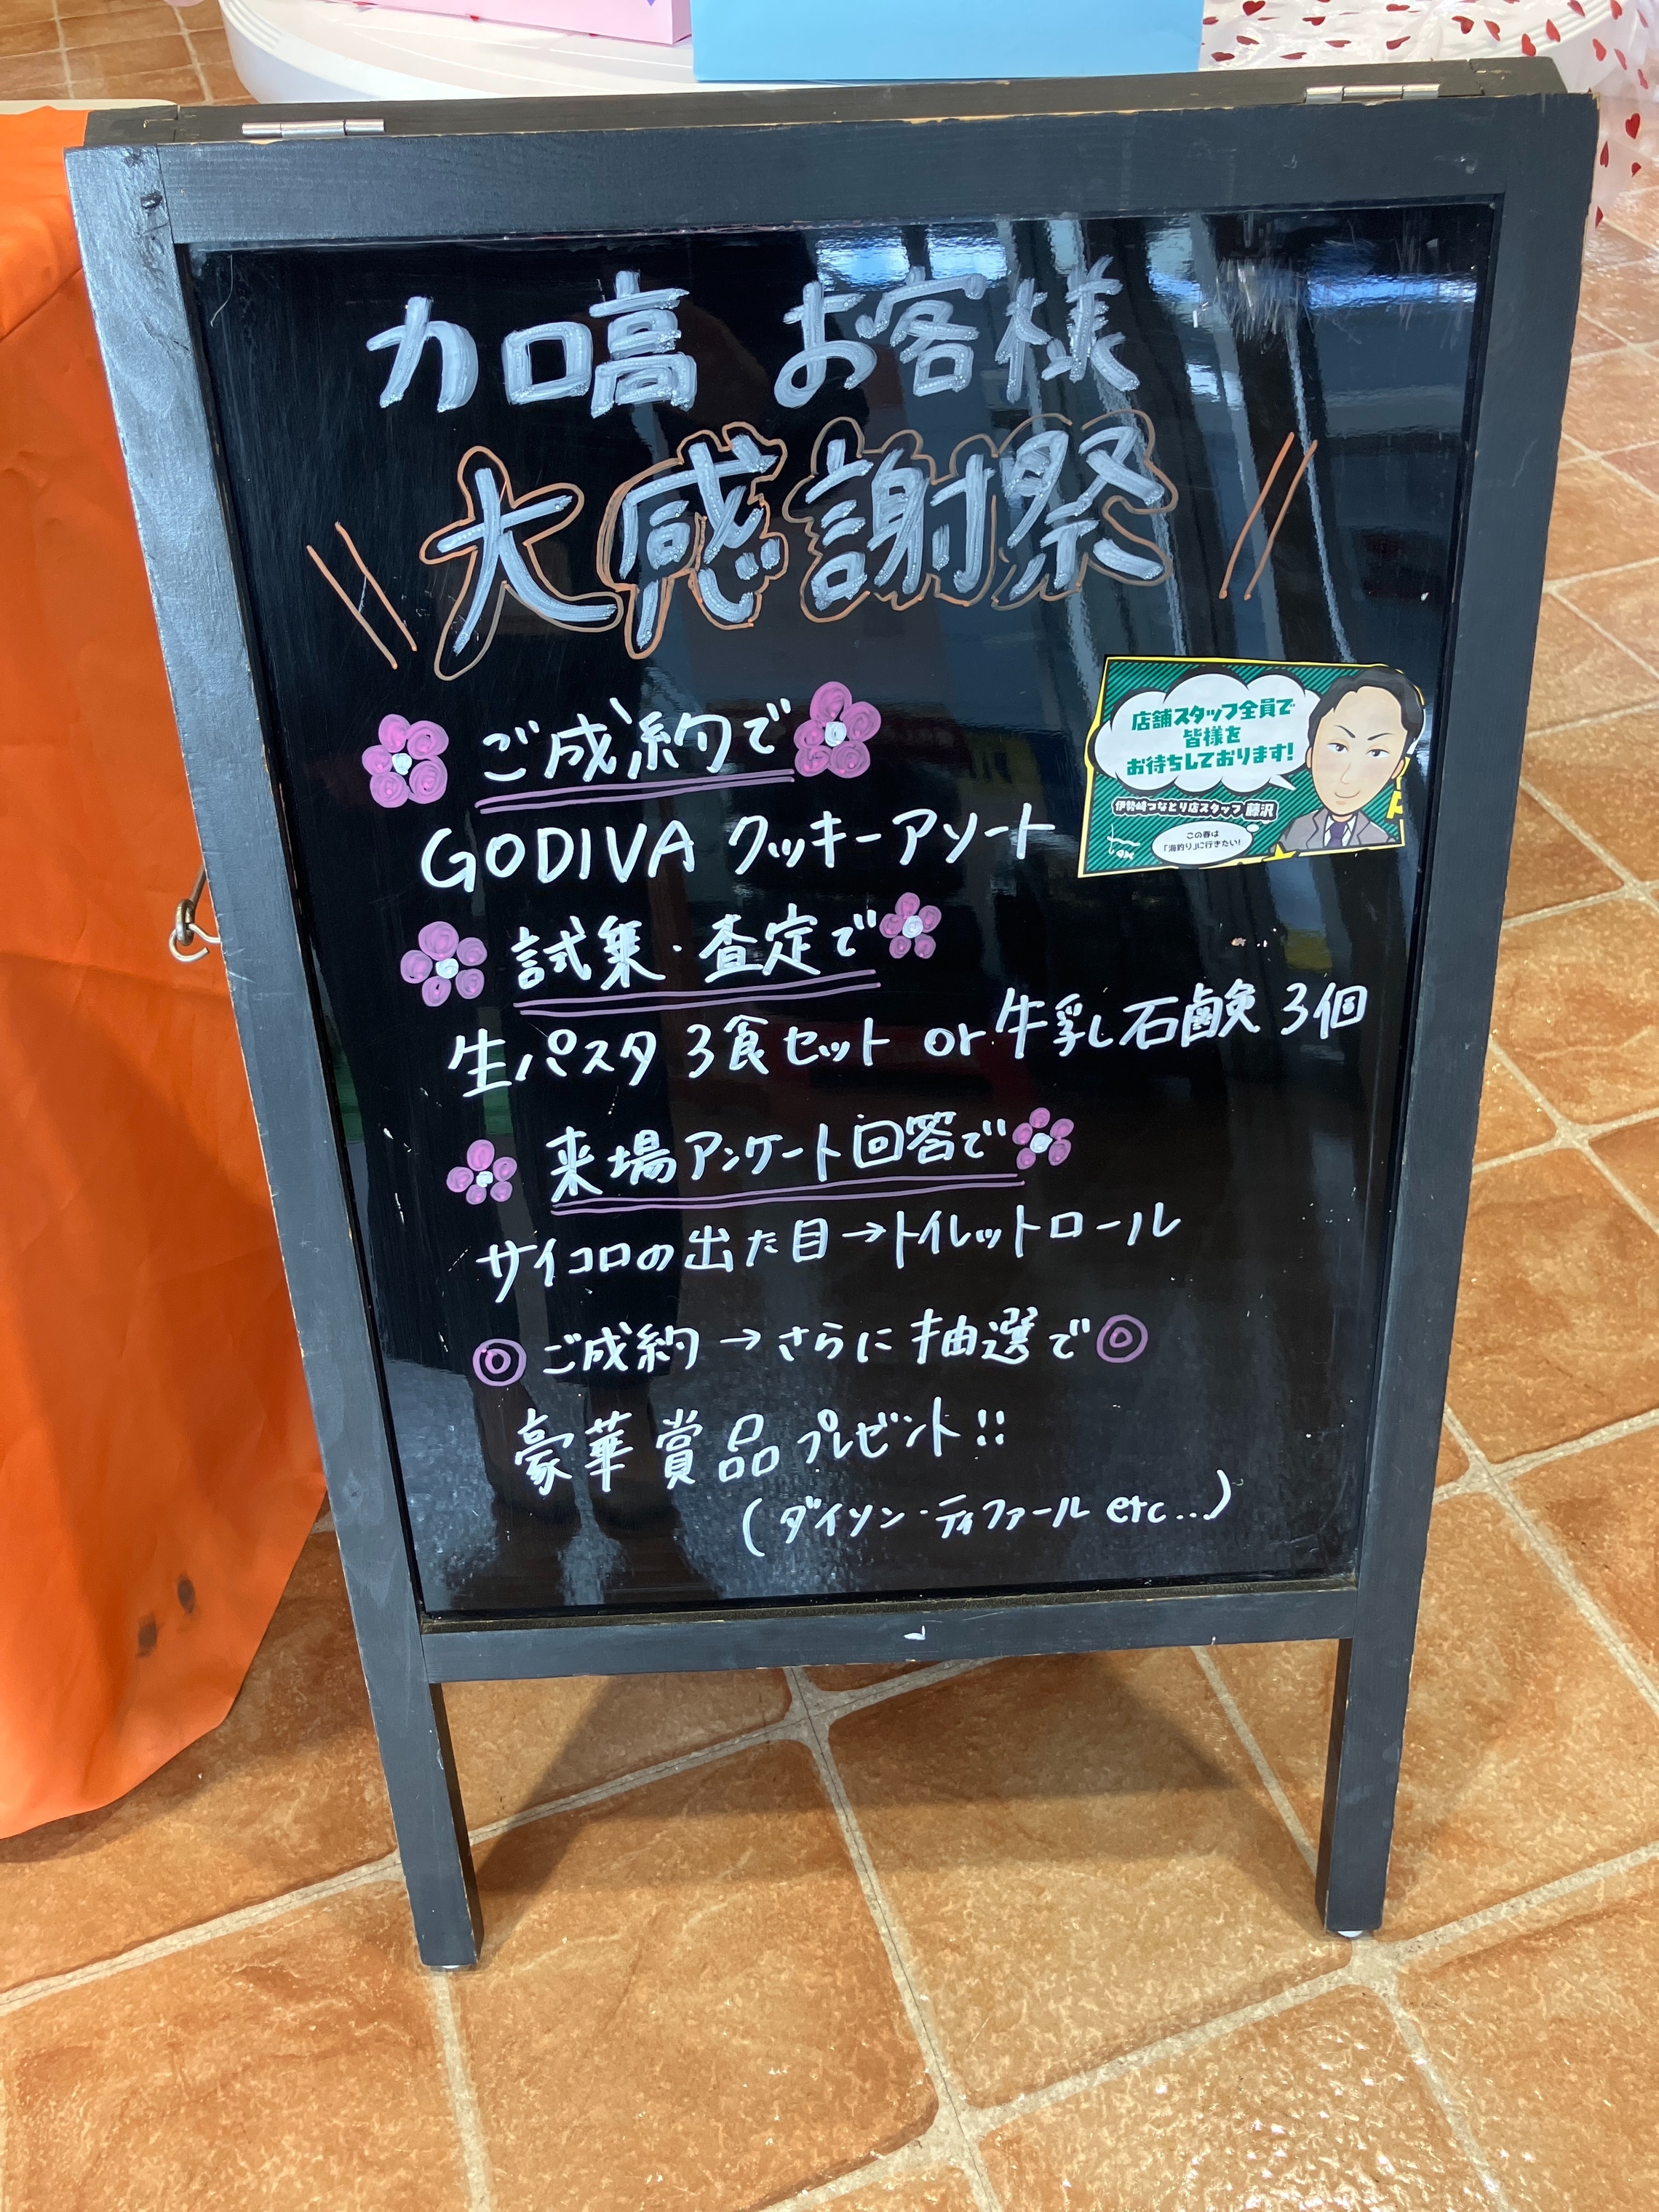 カロ高 お客様
大感謝祭
店舗スタッフ全員で
皆様を
お待ちしております!
伊勢崎つなとり店スタッフ 藤沢
この春は
「海釣り」に行きたい!
ご成約で
GODIVA クッキーアソート
試乗・査定で
生パスタ 3食セット or 牛乳石鹸 3個
来場アンケート回答で
サイコロの出た目→トイレットロール
◎ご成約→さらに抽選で◎
豪華賞品プレゼント!!
(ダイソン・ティファール etc...)